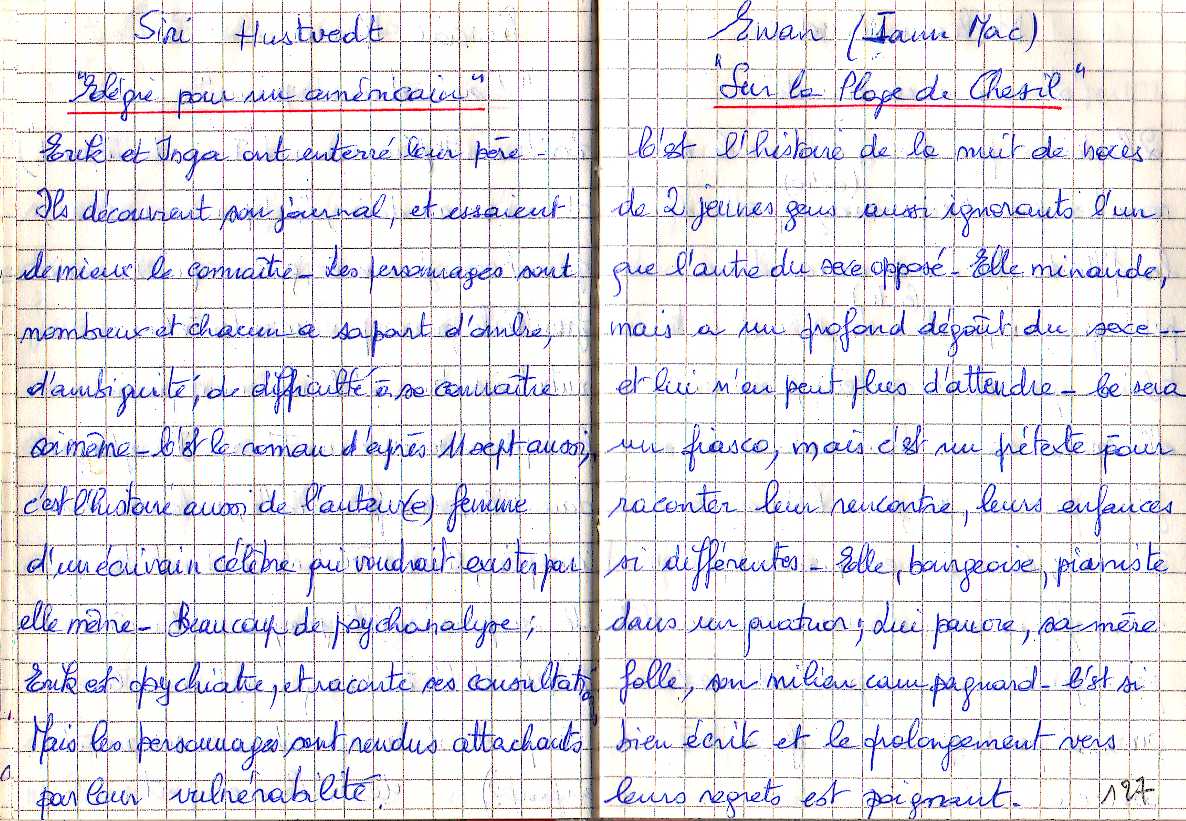 Siri Hustvedt
"Elégie pour un américain"
Erik et Inga ont enterré leur père -
Ils découvrent son journal, et essaient
de mieux le connaître - Les personnages sont
nombreux et chacun a sa part d'ombre,
d'ambiguité, de difficulté à se connaître
soi même - C'est le roman d'après 11 sept aussi,
c'est l'histoire aussi de l'auteur(e) femme
d'un écrivain célèbre qui voudrait exister par
elle même - Beaucoup de psychanalyse ;
Erik est psychiatre, et raconte ses consultations
Mais les personnages sont rendus attachants
par leur vulnérabilité.
Ewan (Iann Mac)
"Sur la Plage de Chesil"
C'est l'histoire de la nuit de noces
de 2 jeunes gens aussi ignorants l'un
que l'autre du sexe opposé - Elle minaude,
mais a un profond dégoût du sexe --
et lui n'en peut plus d'attendre - Ce sera
un fiasco, mais c'est un prétexte pour
raconter leur rencontre, leurs enfances
si différentes - Elle, bourgeoise, pianiste
dans un quatuor ; Lui pauvre, sa mère
folle, son milieu campagnard - C'est si
bien écrit et le prolongement vers
leurs regrets est poignant.
127